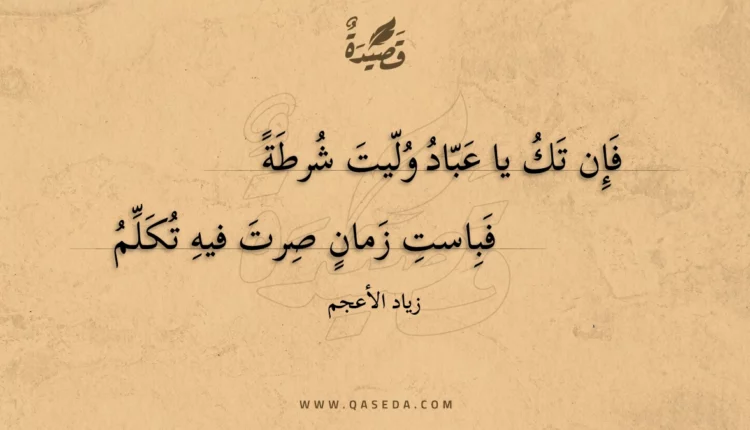 قَصِيْدَةٌ
فَإِن تَكُ يا عَبّادُ وُلّيتَ شُرطَةً
فَبِاستِ زَمانٍ صِرتَ فيهِ تُكَلِّمُ
زياد الأعجم
WWW.QASEDA.COM